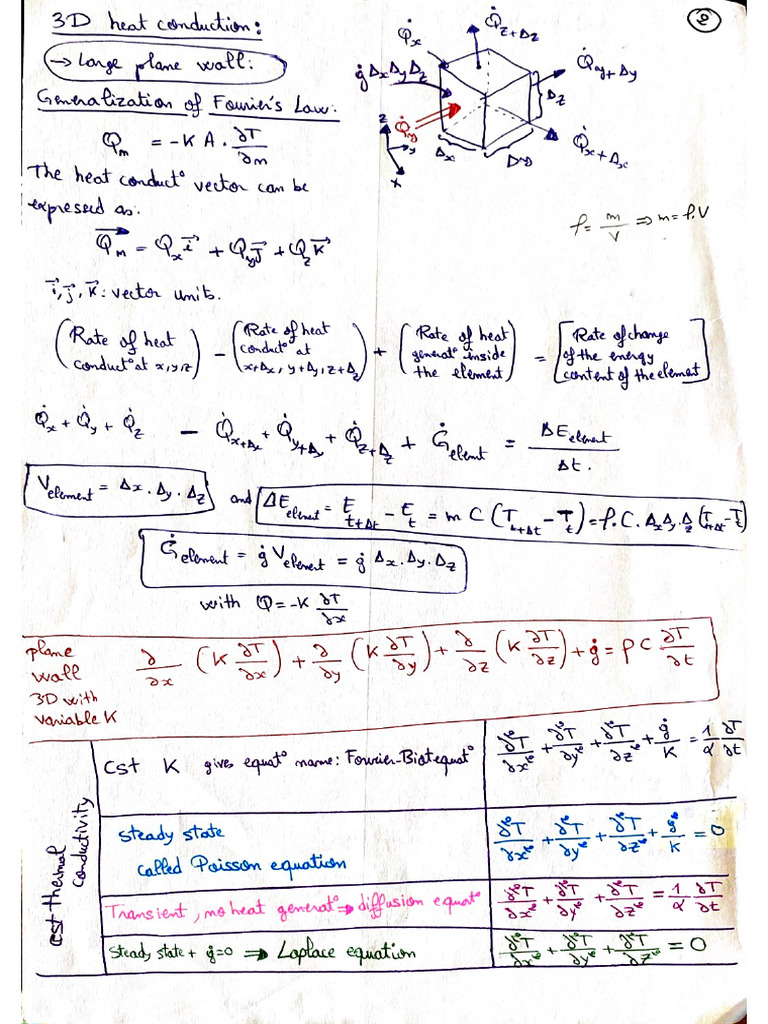 3D heat conduction:
②
→ Large plane wall:
Generalization of Fourier's Law:
Q̇x
Q̇z+Δz
ġ Δx Δy Δz
Q̇y+Δy
Q̇y
Δz
z
y
x
Δx
Δy
Q̇x+Δx
Q̇m = -K A · ∂T/∂m
The heat conduct° vector can be
expressed as:
ρ = m/V ⇒ m = ρ.V
Q⃗m = Qx i⃗ + Qy j⃗ + Qz k⃗
i⃗, j⃗, k⃗ : vector units.
(Rate of heat conduct° at x,y,z) - (Rate of heat conduct° at x+Δx, y+Δy, z+Δz) + (Rate of heat generat° inside the element) = [Rate of change of the energy content of the element]
Q̇x + Q̇y + Q̇z - Q̇x+Δx + Q̇y+Δy + Q̇z+Δz + Ġelemt = ΔEelement/Δt.
Velement = Δx . Δy . Δz and ΔEelement = Et+Δt - Et = m C (Tt+Δt - Tt) = ρ.C. Δx Δy Δz (Tt+Δt - Tt)
Ġelement = ġ Velement = ġ Δx . Δy . Δz
with Q = -K ∂T/∂x
plane wall 3D with variable K
∂/∂x (K ∂T/∂x) + ∂/∂y (K ∂T/∂y) + ∂/∂z (K ∂T/∂z) + ġ = ρ C ∂T/∂t
cst thermal conductivity
Cst K gives equat° name: Fourier-Biot equat°
∂²T/∂x² + ∂²T/∂y² + ∂²T/∂z² + ġ/K = 1/α ∂T/∂t
steady state
called Poisson equation
∂²T/∂x² + ∂²T/∂y² + ∂²T/∂z² + ġ/K = 0
Transient, no heat generat° ⇒ diffusion equat°
∂²T/∂x² + ∂²T/∂y² + ∂²T/∂z² = 1/α ∂T/∂t
Steady state + ġ=0 ⇒ Laplace equation
∂²T/∂x² + ∂²T/∂y² + ∂²T/∂z² = 0